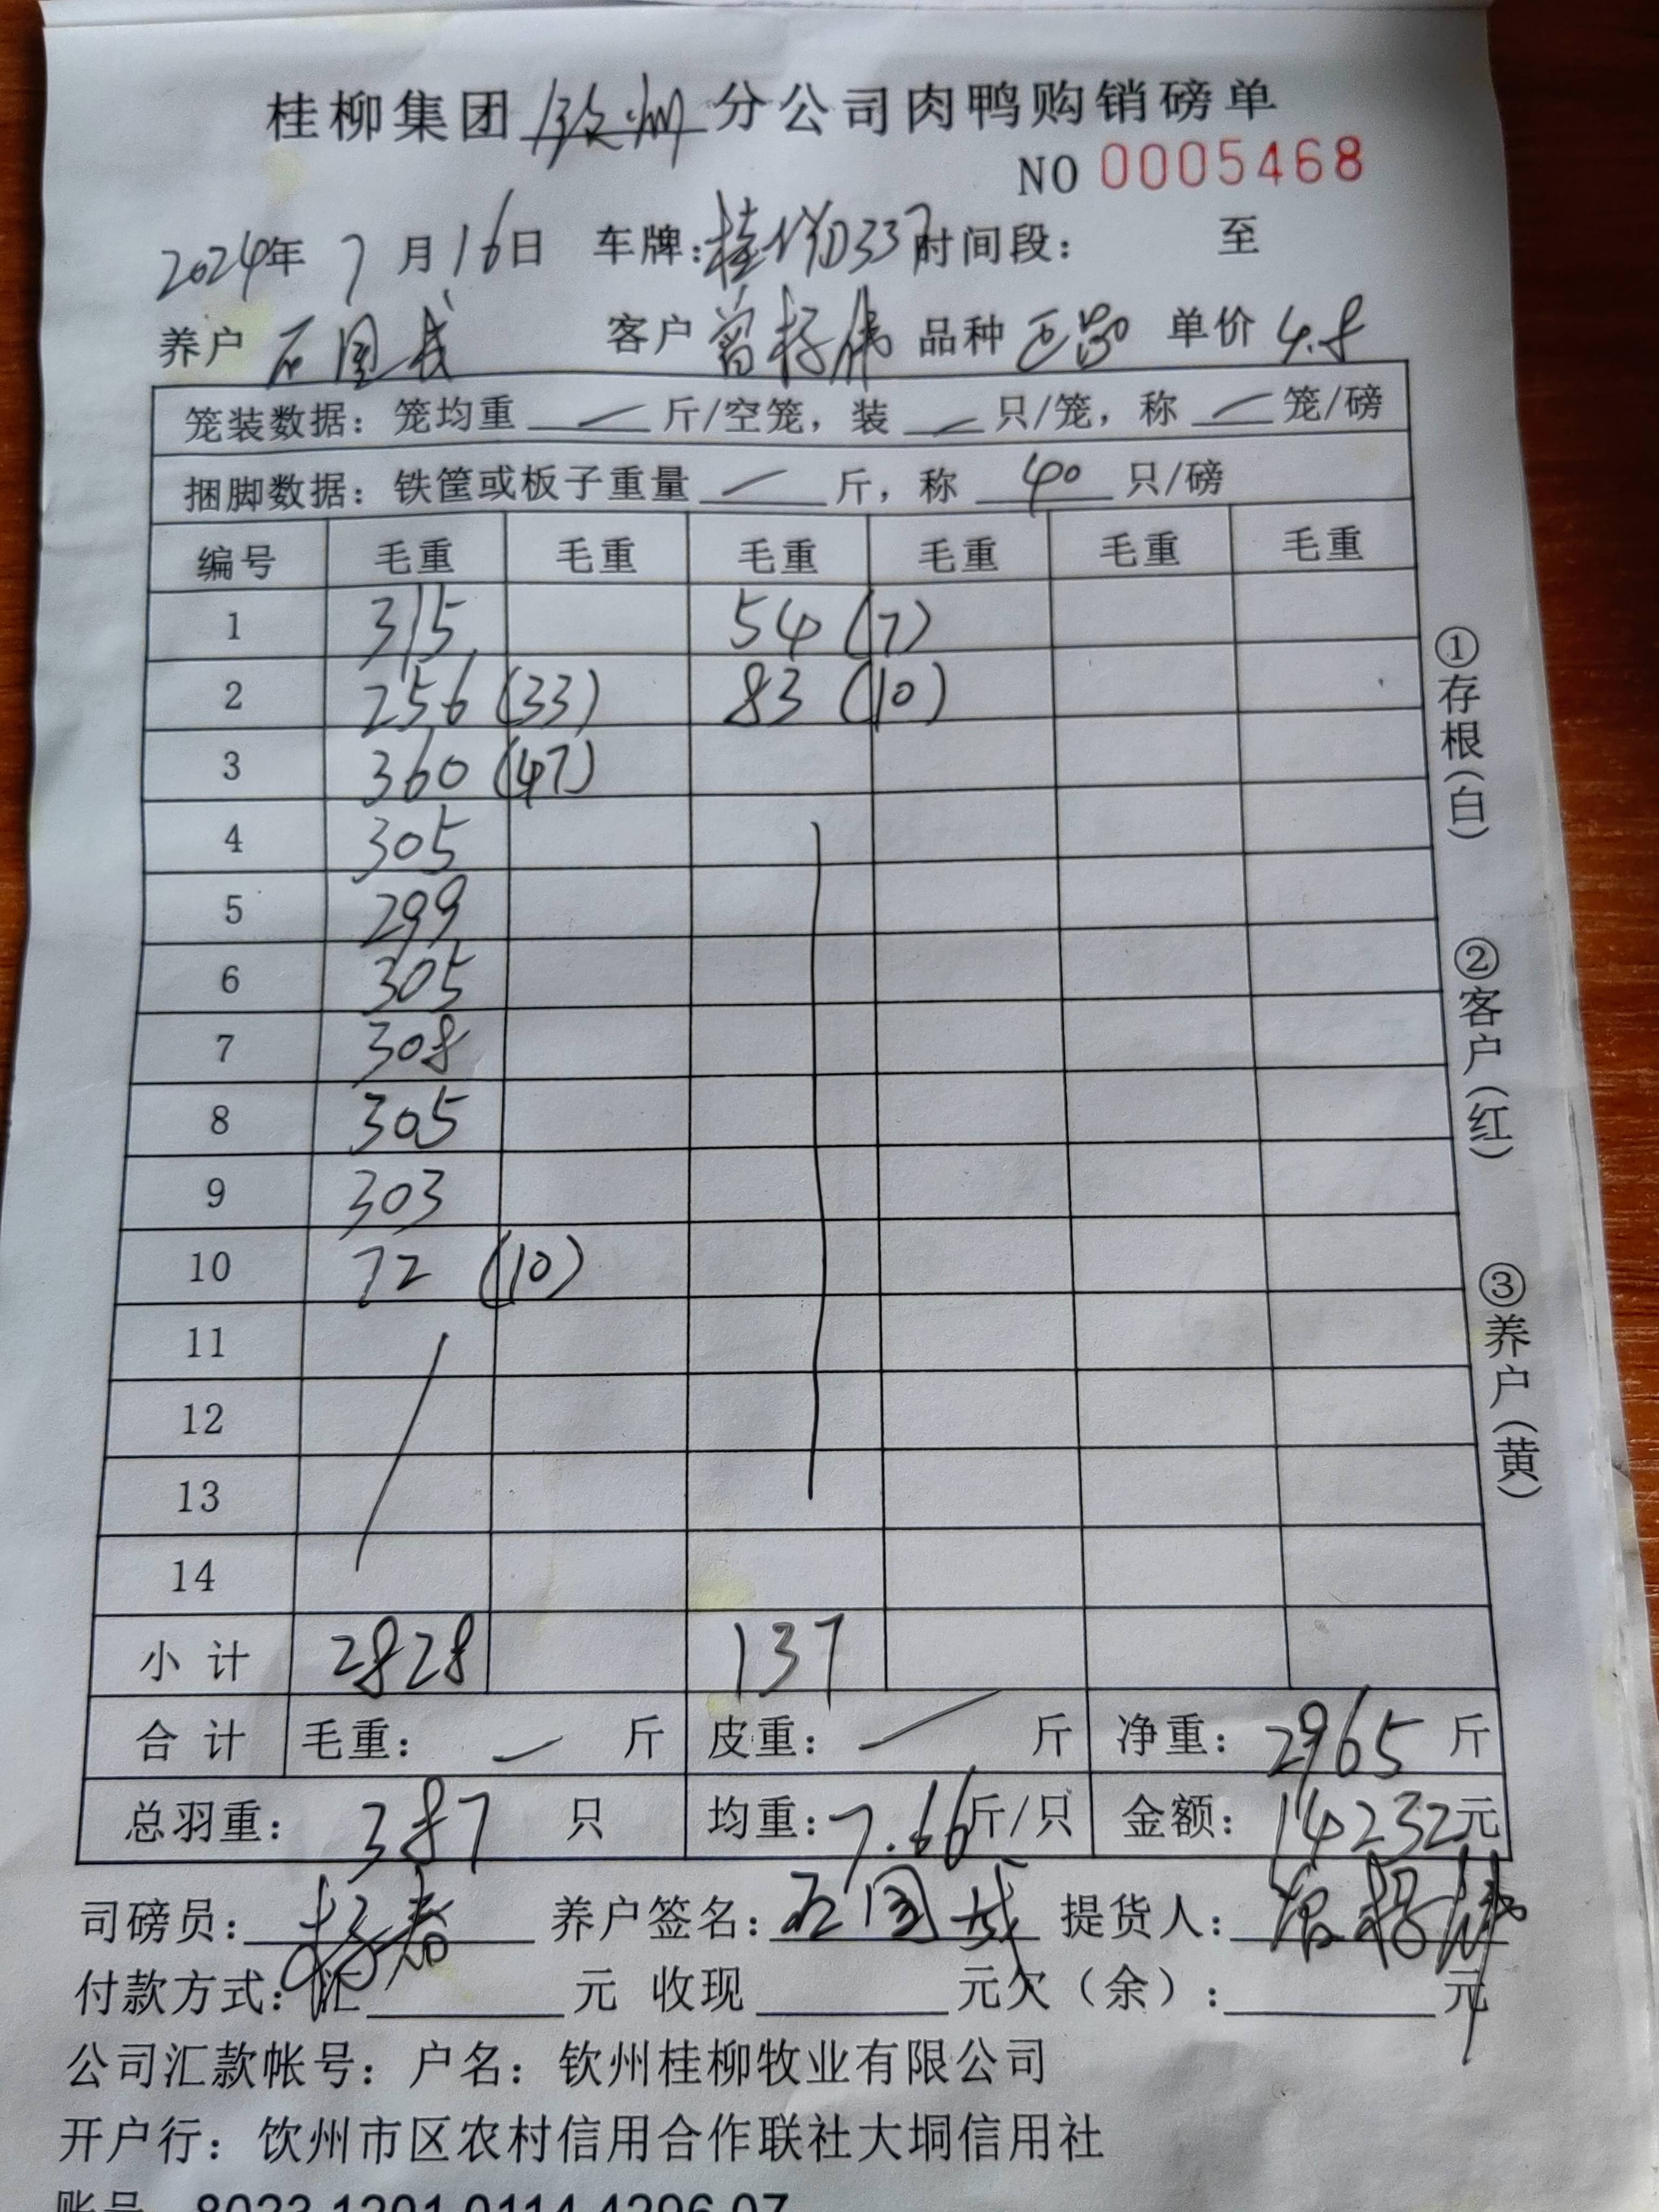 桂柳集团 钦州 分公司肉鸭购销磅单
NO 0005468
2024年 7 月 16 日 车牌: 桂 337 时间段: 至
养户 石国成 客户 曾 伟 品种 单价 4.8
笼装数据: 笼均重 — 斤/空笼, 装 — 只/笼, 称 — 笼/磅
捆脚数据: 铁筐或板子重量 — 斤, 称 40 只/磅
编号 毛重 毛重 毛重 毛重 毛重 毛重
1 315 54 (7)
2 256 (33) 83 (10)
3 360 (47)
4 305
5 299
6 305
7 308
8 305
9 303
10 72 (10)
11
12
13
14
小计 2828 137
合计 毛重: — 斤 皮重: — 斤 净重: 2965 斤
总羽重: 387 只 均重: 7.66 斤/只 金额: 14232 元
司磅员: 养户签名: 石国成 提货人:
付款方式: 汇 元 收现 元 欠（余）: 元
公司汇款帐号: 户名: 钦州桂柳牧业有限公司
开户行: 饮州市区农村信用合作联社大垌信用社
账号 8023 1201 0114 4296 07
①存根(白)
②客户(红)
③养户(黄)